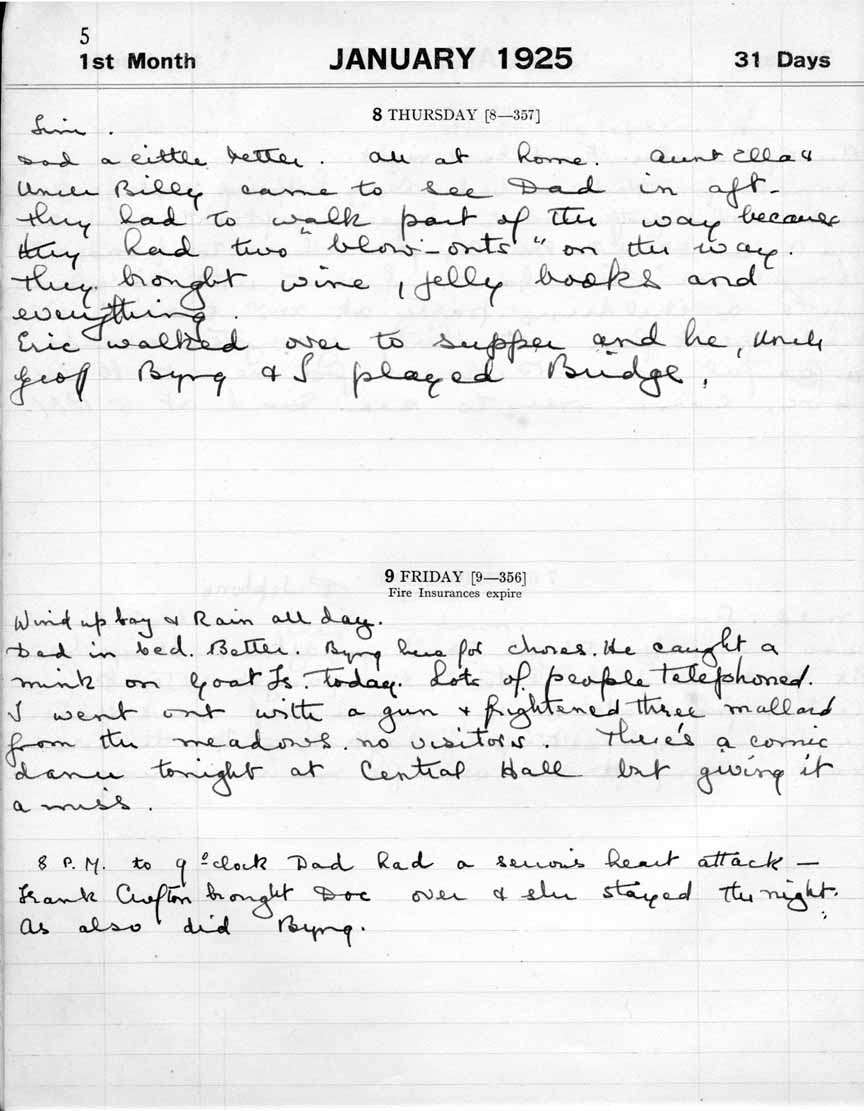 5
1st Month JANUARY 1925 31 Days
8 THURSDAY [8—357]
Dad a little better. All at home. Aunt Ella &
Uncle Billy came to see Dad in aft-
they had to walk part of the way because
they had two "blow-outs" on the way.
They brought wine, jelly books and
everything.
Eric walked over to supper and he, Uncle
Geof Byng & I played Bridge.
9 FRIDAY [9—356]
Fire Insurances expire
Wind up bay & Rain all day.
Dad in bed. Better. Byng here for chores. He caught a
mink on Goat Is. today. Lots of people telephoned.
I went out with a gun & frightened three mallard
from the meadows. no visitors. There's a comic
dance tonight at Central Hall but giving it
a miss.
8 P.M. to 9 o'clock Dad had a serious heart attack —
Frank Crofton brought Doc over & she stayed the night.
As also did Byng.